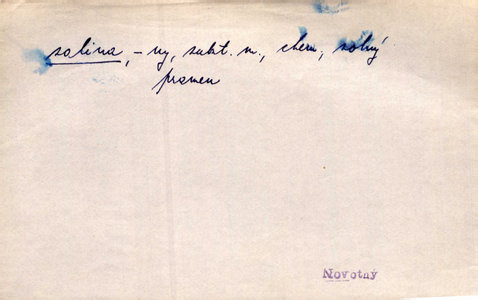 salina, -ny, subt. m., chem., solný
pramen
Novotný